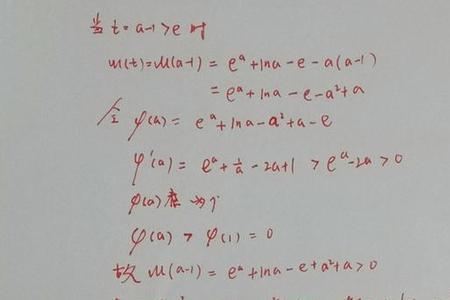 当 t = a-1 > e 时
u(t) = u(a-1) = eᵃ + lna - e - a(a-1)
= eᵃ + lna - e - a² + a
令 φ(a) = eᵃ + lna - a² + a - e
φ'(a) = eᵃ + 1/a - 2a + 1 > eᵃ - 2a > 0
φ(a)
φ(a) > φ(1) = 0
故 u(a-1) = eᵃ + lna - e + a² + a > 0